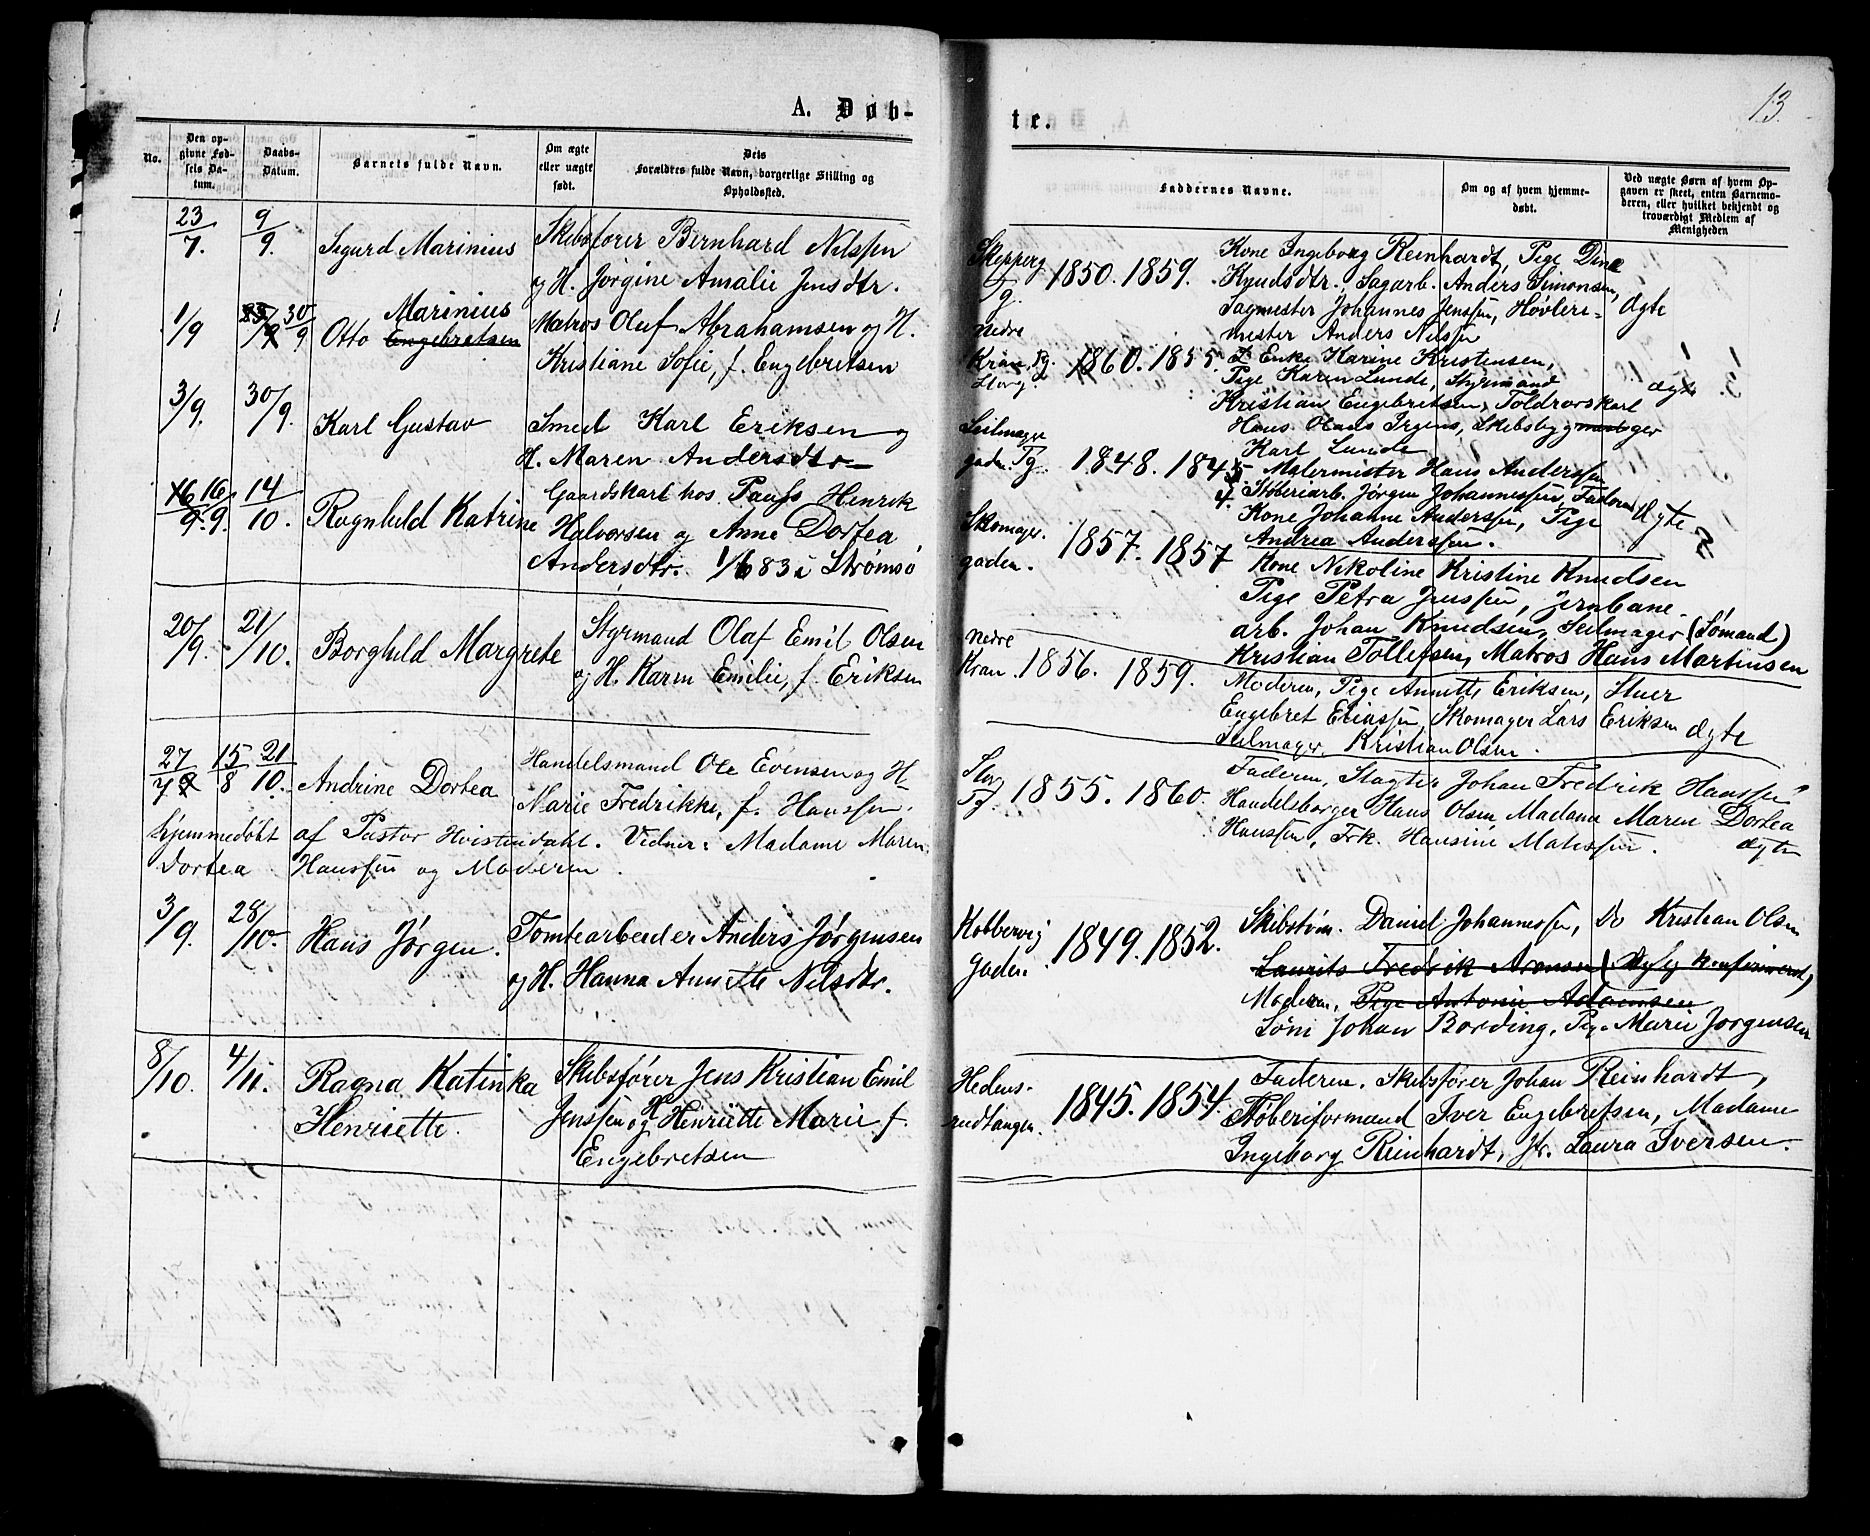 A. Døb-
No.
Den opgivne Fødsels Datum.
Daabs-Datum.
Barnets fulde Navn.
Om ægte eller uægte født.
Dets Forældres fulde Navn, borgerlige Stilling og Opholdsted.
23/7. 9/9. Sigurd Marinius
Skibsfører Bernhard Nilssen
og H. Jørgine Amalie Jensdtr.
1/9 30/9 Otto Marinius Engebretsen
Matros Oluf Abrahamsen og H.
Kristiane Sofie, f. Engebretsen
3/9. 30/9. Karl Gustav
Smed Karl Eriksen og
H. Maren Andersdtr.
16/9. 14/10. Ragnhild Katrine
Gaardskarl hos Paus Henrik
Halvorsen og Anne Dortea
Andersdtr. 1/6 83 i Strømsø
20/9. 21/10. Borghild Margrete
Styrmand Olaf Emil Olsen
og H. Karen Emilie, f. Eriksen
27/7 15/8 21/10. Andrine Dortea
Handelsmand Ole Evensen og H.
Marie Fredrikke, f. Hanssen.
hjemmedøbt af Pastor Hvistendahl. Vidner: Madame Maren
Dortea Hanssen og Moderen.
3/9. 28/10. Hans Jørgen.
Tomtearbeider Anders Jørgensen
og H. Hanna Annette Nilsdtr.
8/10. 4/11. Ragna Katinka
Henriette.
Skibsfører Jens Kristian Emil
Jenssen og H Henriette Marie f.
Engebretsen
te.
13.
Faddernes Navne.
Om og af hvem hjemmedøbt.
Ved uægte Børn af hvem Opgaven er skeet, enten Barnemoderen, eller hvilket bekjendt og troværdigt Medlem af Menigheden
1850. 1859.
Kone Ingeborg Reinhardt, Pige Dina
Knudsdtr., Sagarb. Anders Simonsen,
Sagmester Johannes Jenssen, Høvleri-
mester Anders Nilssen
Ægte
nedre
1860. 1855.
Enke Karine Kristensen,
Pige Karen Lunde, Styrmand
Kristian Engebretsen, Toldrorskarl
Hans Olaus Irgens, Skibsbygger
Karl Lunde
ægte
Seilmager
gaden. Tg.
1848. 1845
4.
Malermester Hans Anderssen
Støberiarb. Jørgen Johannessen, Faderen
Kone Johanne Anderssen, Pige
Andrea Anderssen.
Ægte
Skomager.
gaden.
1857. 1857
Kone Nikoline Kristine Knudsen
Pige Petra Jenssen, Jernbane-
arb. Johan Knudsen, Seilmager (Sømand)
Kristian Tollefsen, Matros Hans Martinsen
nedre
Kran.
1856. 1859.
Moderen, Pige Annette Eriksen, Stuer
Engebret Eriassen, Skomager Lars Eriksen
Seilmager Kristian Olsen.
ægte
Stor
Tg.
1855. 1860.
Faderen, Slagter Johan Fredrik Hanssen
Handelsborger Hans Olsen Madame Maren Dortea
Hanssen, Frk. Hansine Mathissen.
ægte
Kobbervig
gaden.
1849. 1852.
Skibstøm. Daniel Johannessen, Do Kristian Olsen
Laurits Fredrik Aronsen
Moderen, Pige Antonie Adamsen
Johan Bording, Pige Marie Jørgensen
Hedens-
rudtangen.
1845. 1854.
Faderen, Skibsfører Johan Reinhardt,
Støberiformand Iver Engebretsen, Madame
Ingeborg Reinhardt, Laura Iversen.